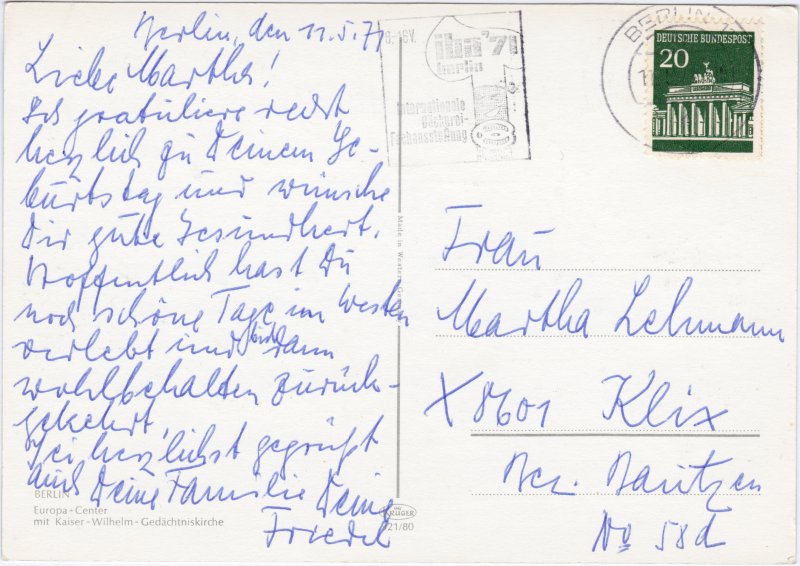 Berlin, den 11.5.71
Liebe Martha!
Ich gratuliere recht
herzlich zu Deinem Ge-
burtstag und wünsche
Dir gute Gesundheit.
Hoffentlich hast Du
noch schöne Tage im Westen
verlebt und bist dann
wohlbehalten zurück-
gekehrt,
Sei herzlichst gegrüßt
auch Deine Familie Deine
Friedel
BERLIN
Europa-Center
mit Kaiser-Wilhelm-Gedächtniskirche
KRÜGER
921/80
Made in Western Germany
iba '71
berlin
Internationale
Bäckerei-
Fachausstellung
BERLIN
DEUTSCHE BUNDESPOST
20
Frau
Martha Lehmann
X 8601 Klix
Bez. Bautzen
No 58d